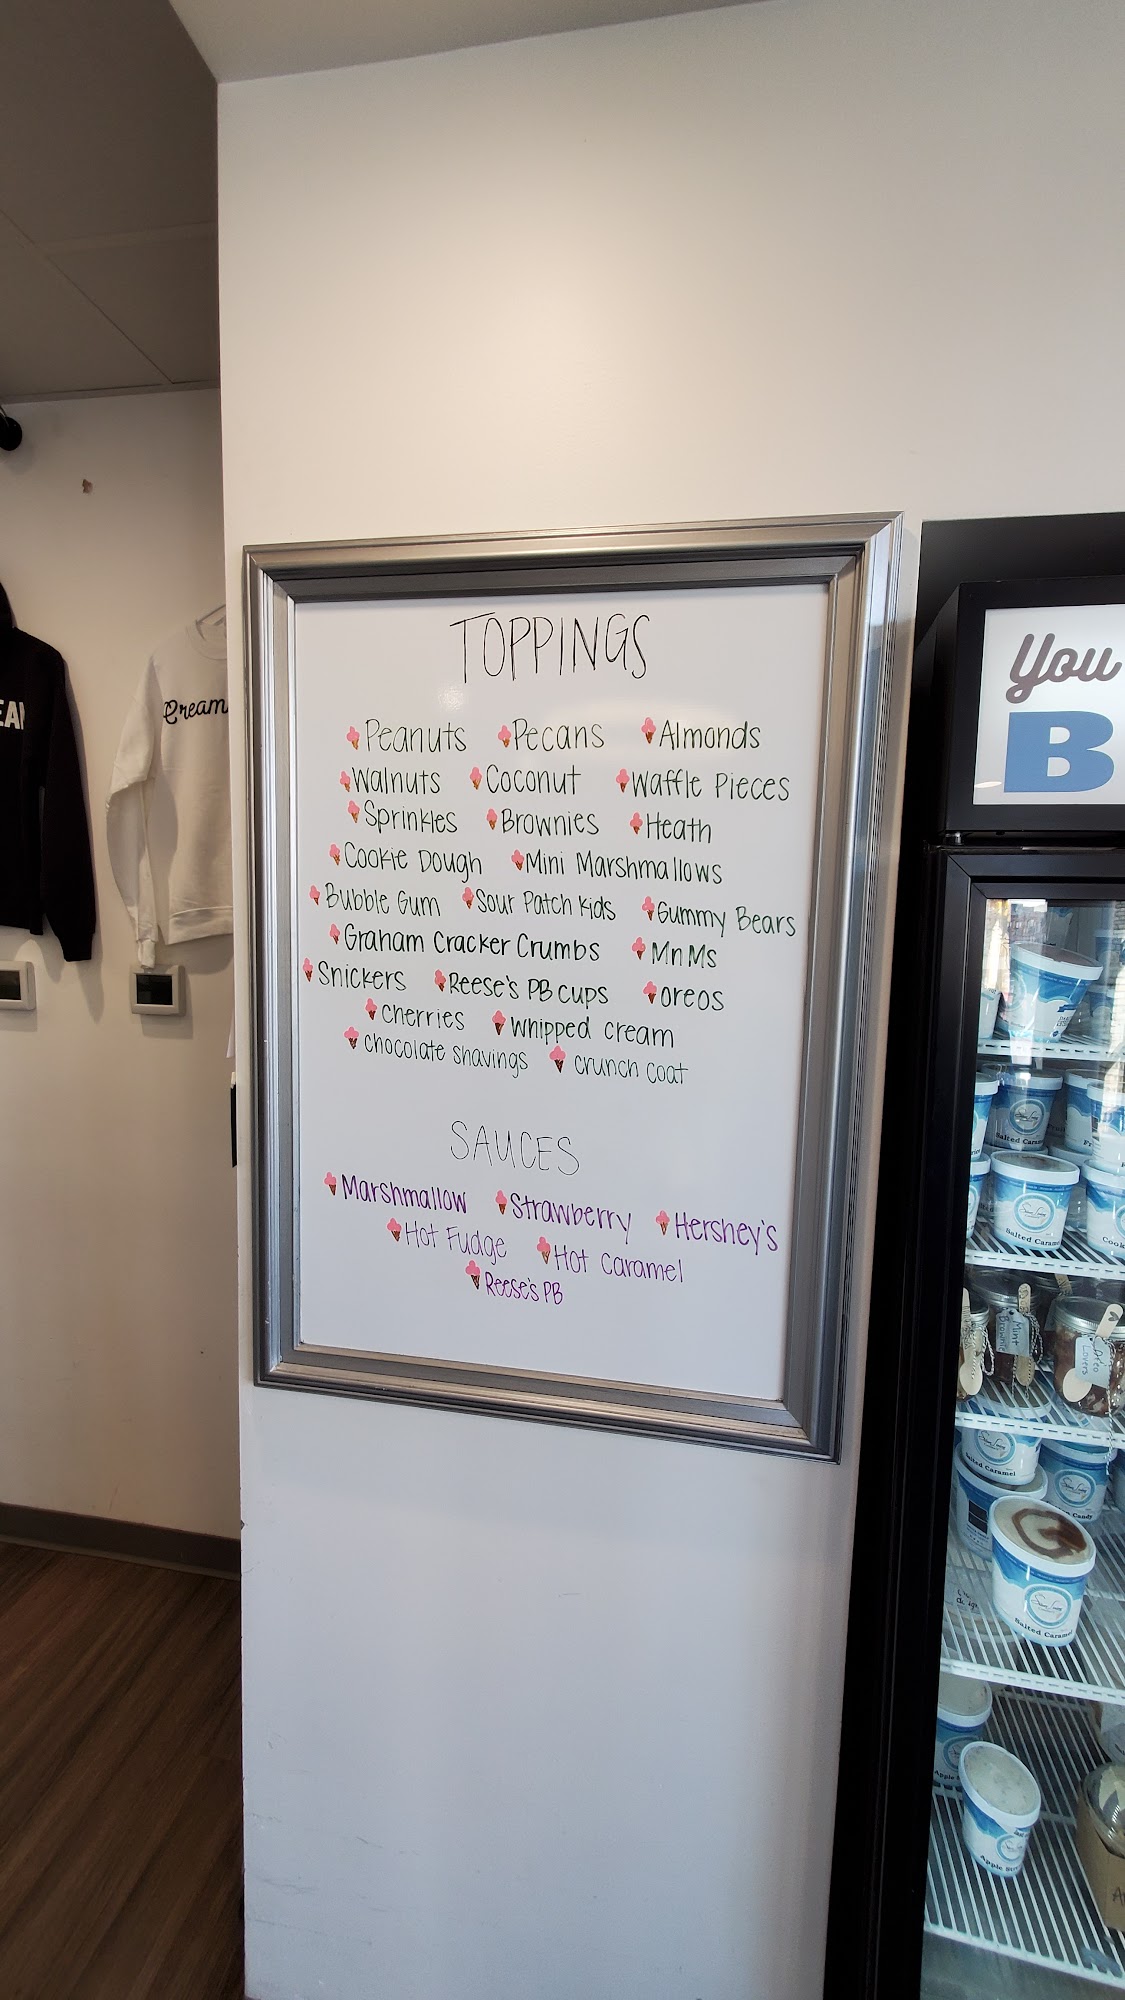 TOPPINGS
Peanuts Pecans Almonds
Walnuts Coconut Waffle Pieces
Sprinkles Brownies Heath
Cookie Dough Mini Marshmallows
Bubble Gum Sour Patch Kids Gummy Bears
Graham Cracker Crumbs MnMs
Snickers Reese's PB cups oreos
cherries whipped cream
chocolate shavings crunch coat
SAUCES
Marshmallow Strawberry Hershey's
Hot Fudge Hot Caramel
Reese's PB
Cream
EA
You
B
Salted Caram
Salted Carame
Cook
Mint
Brownie
Oreo
Lovers
Salted Caramel
Candy
Salted Carame
Apple
Apple Str